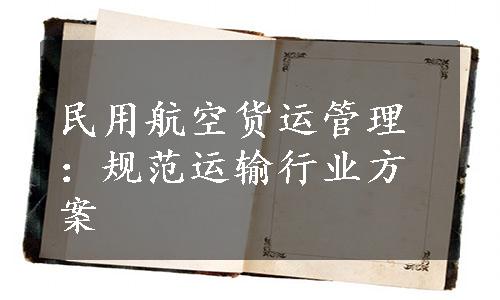 民用航空货运管理
：规范运输行业方
案